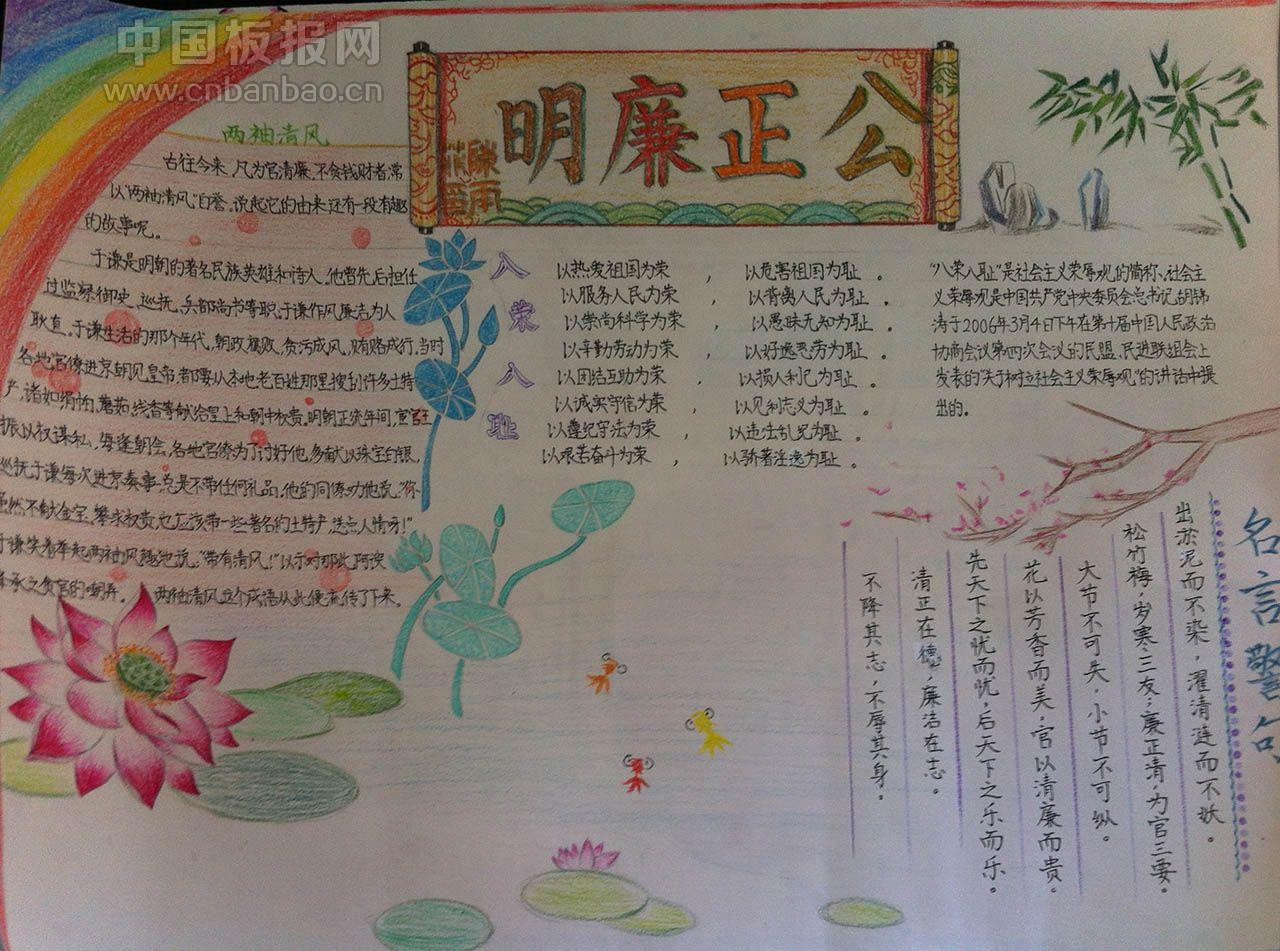 中国板报网
www.cnbanbao.cn
公正廉明
两袖清风
古往今来,凡为官清廉,不贪钱财者,常
以"两袖清风"自誉,说起它的由来还有一段有趣
的故事呢。
于谦是明朝的著名民族英雄和诗人,他曾先后担任
过监察御史、巡抚、兵部尚书等职,于谦作风廉洁为人
耿直。于谦生活的那个年代,朝政腐败,贪污成风,贿赂成行。当时
各地官僚进京朝见皇帝,都要从本地老百姓那里搜刮许多土特
产,诸如绢帕、蘑菇、线香等献给皇上和朝中权贵。明朝正统年间,宦官王
振以权谋私,每逢朝会,各地官僚为了讨好他,多献以珠宝白银,
巡抚于谦每次进京奏事,总是不带任何礼品,他的同僚劝他说:"你
虽然不献金宝、攀求权贵,也应该带一些著名的土特产,送点人情呀!"
于谦笑着举起两袖风趣地说:"带有清风!"以示对那些阿谀
奉承之贪官的嘲弄。两袖清风这个成语从此便流传了下来。
八荣八耻
以热爱祖国为荣,以危害祖国为耻。
以服务人民为荣,以背离人民为耻。
以崇尚科学为荣,以愚昧无知为耻。
以辛勤劳动为荣,以好逸恶劳为耻。
以团结互助为荣,以损人利己为耻。
以诚实守信为荣,以见利忘义为耻。
以遵纪守法为荣,以违法乱纪为耻。
以艰苦奋斗为荣,以骄奢淫逸为耻。
"八荣八耻"是社会主义荣辱观的简称、社会主
义荣辱观是中国共产党中央委员会总书记胡锦
涛于2006年3月4日下午在第十届中国人民政治
协商会议第四次会议的民盟、民进联组会上
发表的"关于树立社会主义荣辱观"的讲话中提
出的。
名言警句
出淤泥而不染,濯清涟而不妖。
松竹梅,岁寒三友;廉正清,为官三要。
大节不可失,小节不可纵。
花以芳香而美,官以清廉而贵。
先天下之忧而忧,后天下之乐而乐。
清正在德,廉洁在志。
不降其志,不辱其身。